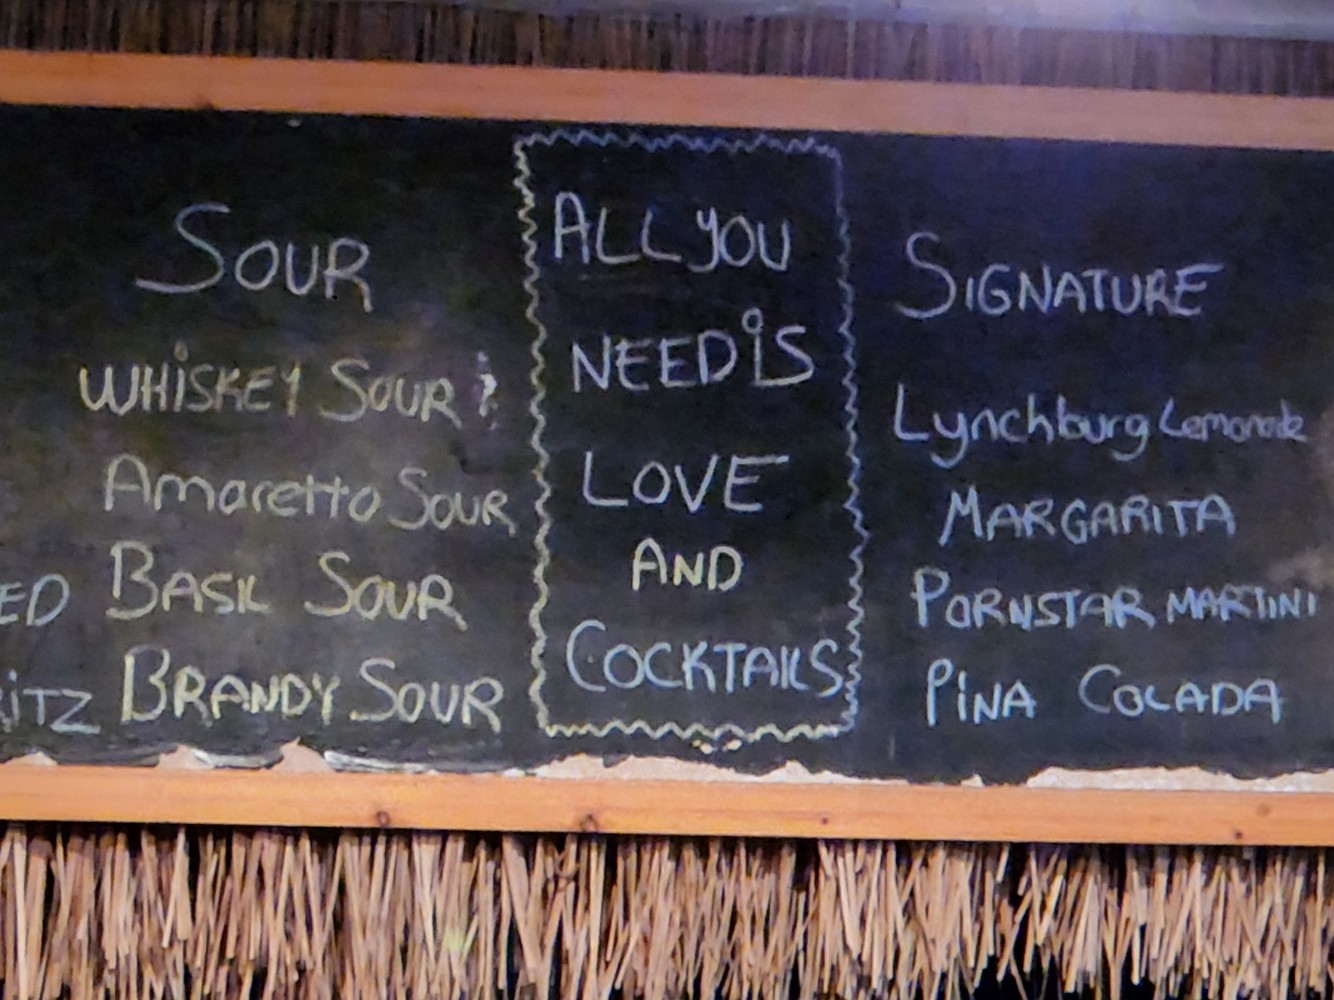 SOUR
WHiSKEY SOUR
Amaretto SOUR
BASIL SOUR
BRANDY SOUR
ED
iTZ
ALL YOU
NEED iS
LOVE
AND
COCKTAILS
SIGNATURE
Lynchburg Lemonade
MARGARITA
PORNSTAR MARTINI
PiNA COLADA